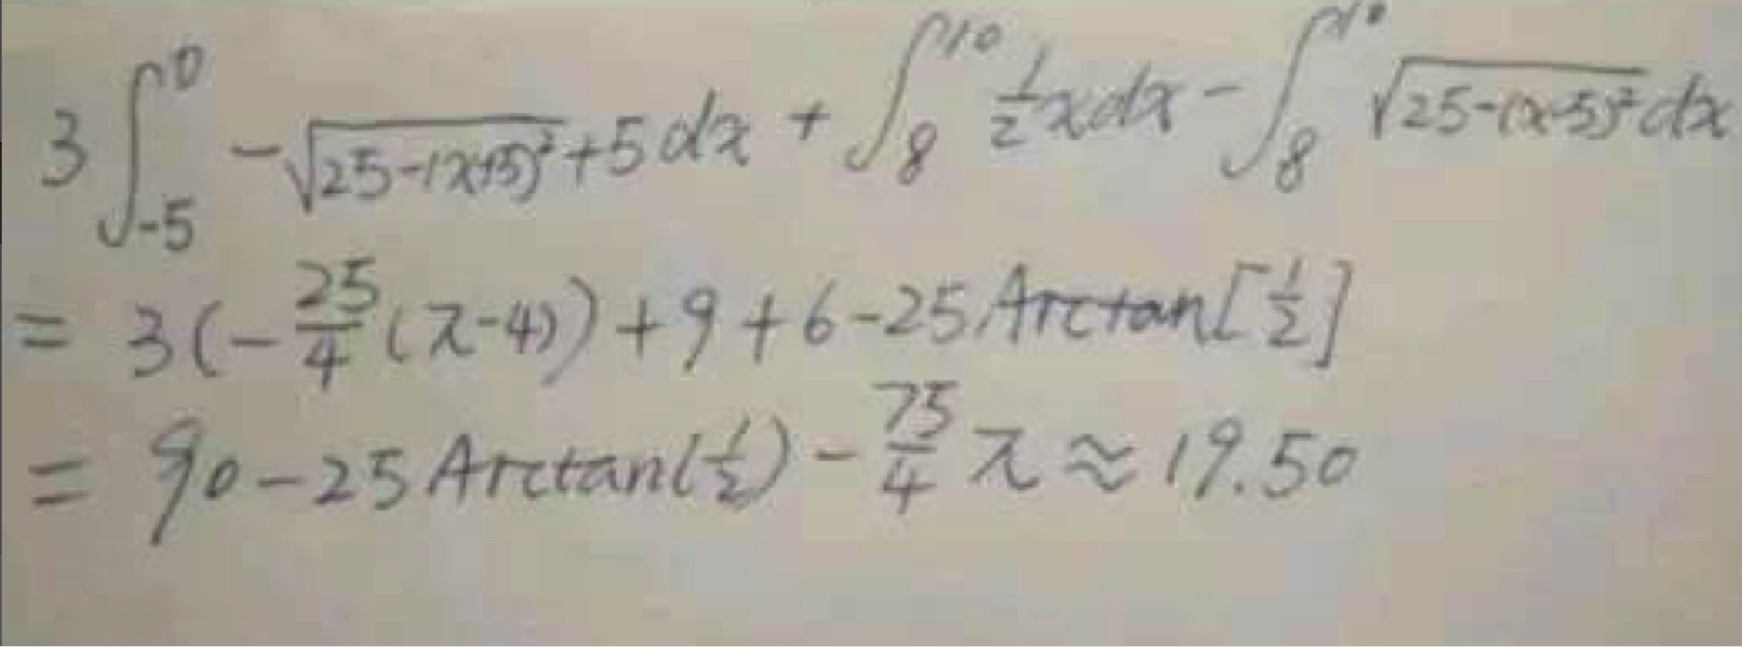 3∫_{-5}^{0} -√(25-(x+5)²)+5dx + ∫_{8}^{10} ½xdx - ∫_{8}^{10} √(25-(x-5)²)dx
= 3(-25/4(π-4))+9+6-25Arctan[½]
= 90-25Arctan(½)-75/4π≈19.50